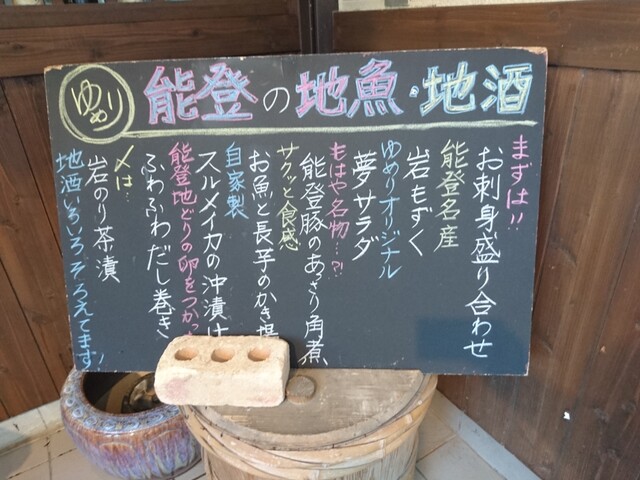 ゆめり
能登の地魚・地酒
まずは!!
お刺身盛り合わせ
能登名産
岩もずく
ゆめりオリジナル
夢サラダ
もはや名物…?!
能登豚のあっさり角煮
サクッと食感
お魚と長芋のかき揚
自家製
スルメイカの沖漬け
能登地どりの卵をつかっ
ふわふわだし巻き
〆は…
岩のり茶漬
地酒いろいろそろえてます!